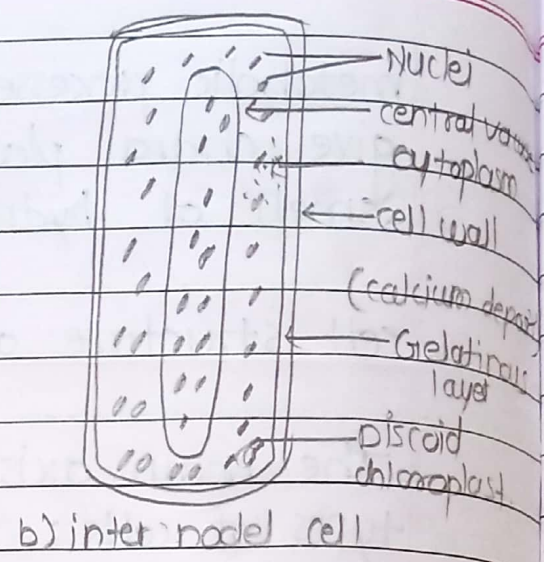 Nuclei
central
cytoplasm
cell wall
(calcium
Gelatinous
layer
Discoid
chloroplast
b) inter nodel cell